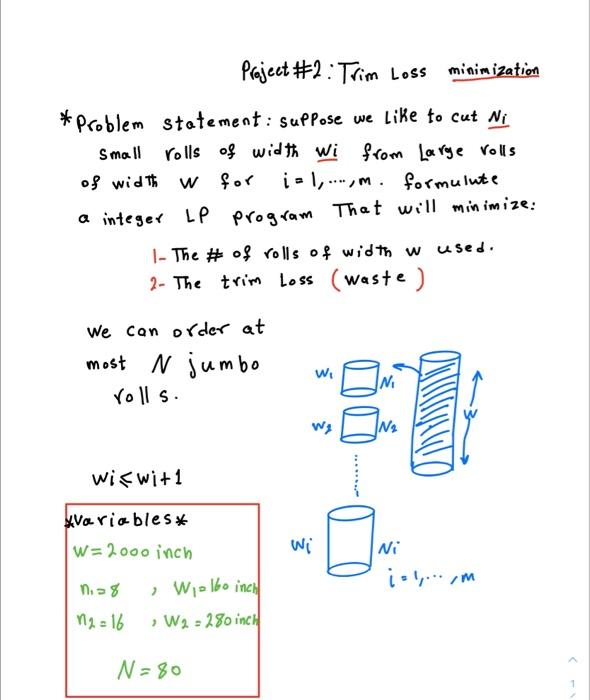 Project #2: Trim Loss minimization
*Problem statement: suppose we like to cut Ni
small rolls of width wi from Large rolls
of width w for i=1,....,m. formulute
a integer LP program That will minimize:
1- The # of rolls of width w used.
2- The trim Loss (waste)
we can order at
most N jumbo
rolls.
W1 N1
W2 N2
W
wi⩽wi+1
Wi Ni
i=1,...,m
*variables*
W=2000 inch
n1=8 , W1=160 inch
n2=16 , W2=280 inch
N=80
1